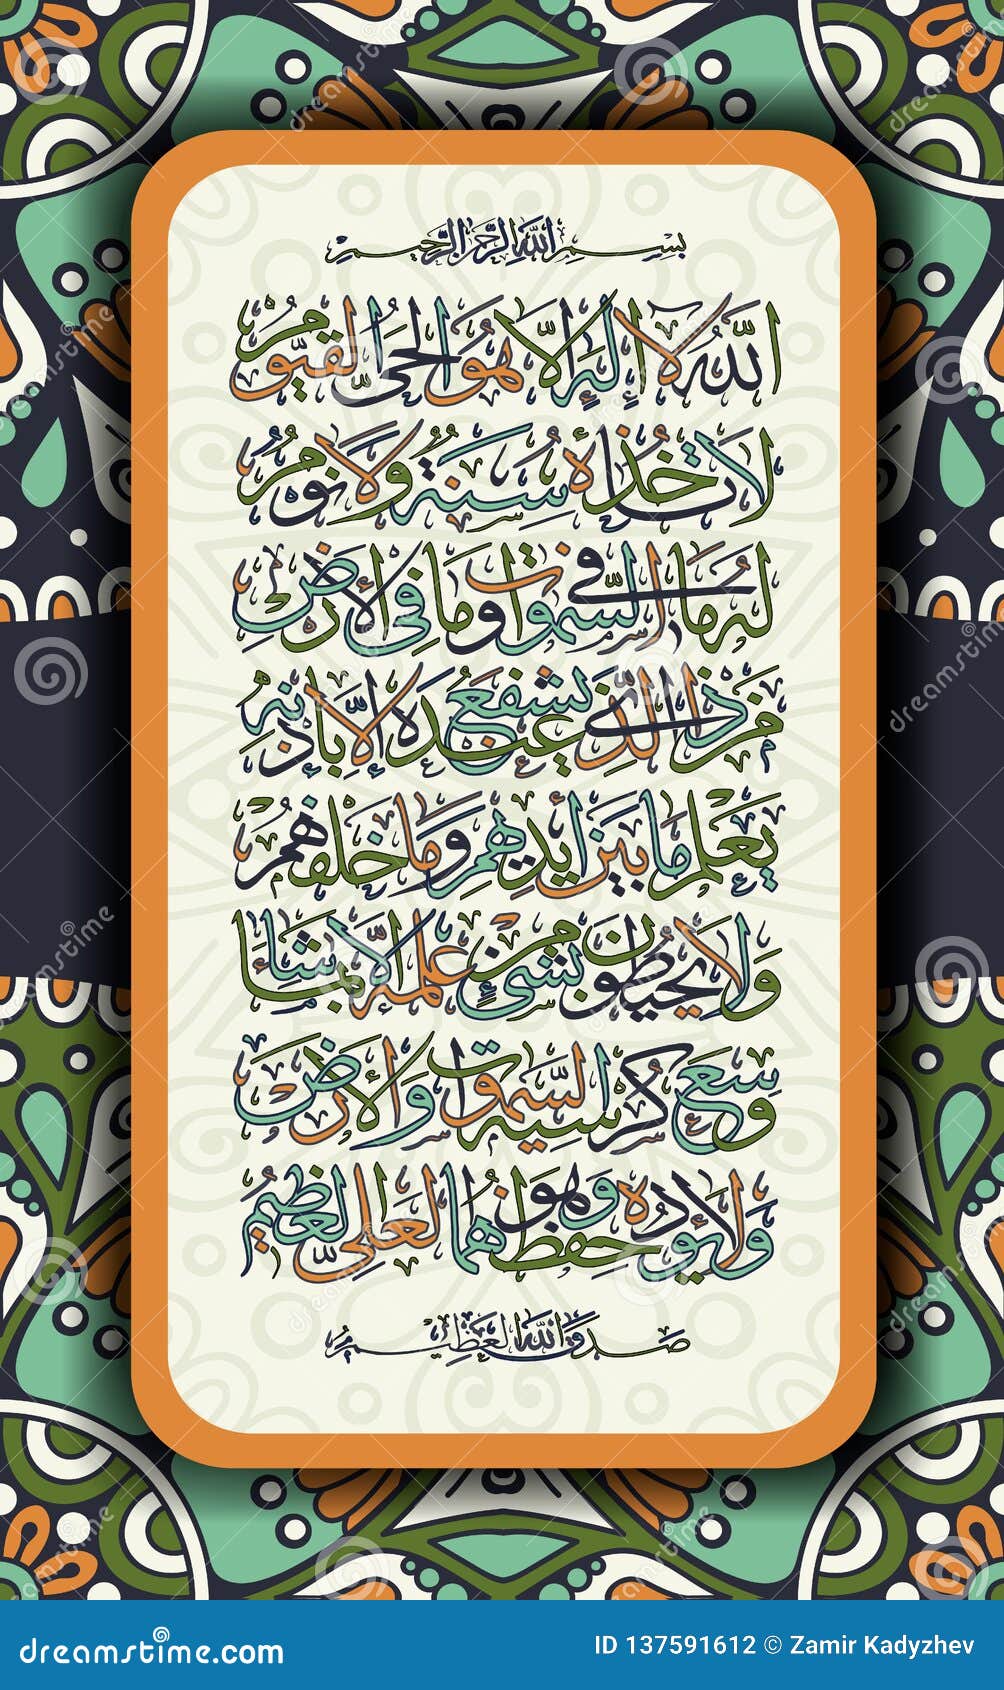 بسم الله الرحمن الرحيم
الله لا إله إلا هو الحي القيوم
لا تأخذه سنة ولا نوم
له ما في السموات وما في الأرض
من ذا الذي يشفع عنده إلا بإذنه
يعلم ما بين أيديهم وما خلفهم
ولا يحيطون بشيء من علمه إلا بما شاء
وسع كرسيه السموات والأرض
ولا يؤده حفظهما وهو العلي العظيم
صدق الله العظيم
dreamstime.com
ID 137591612 © Zamir Kadyzhev